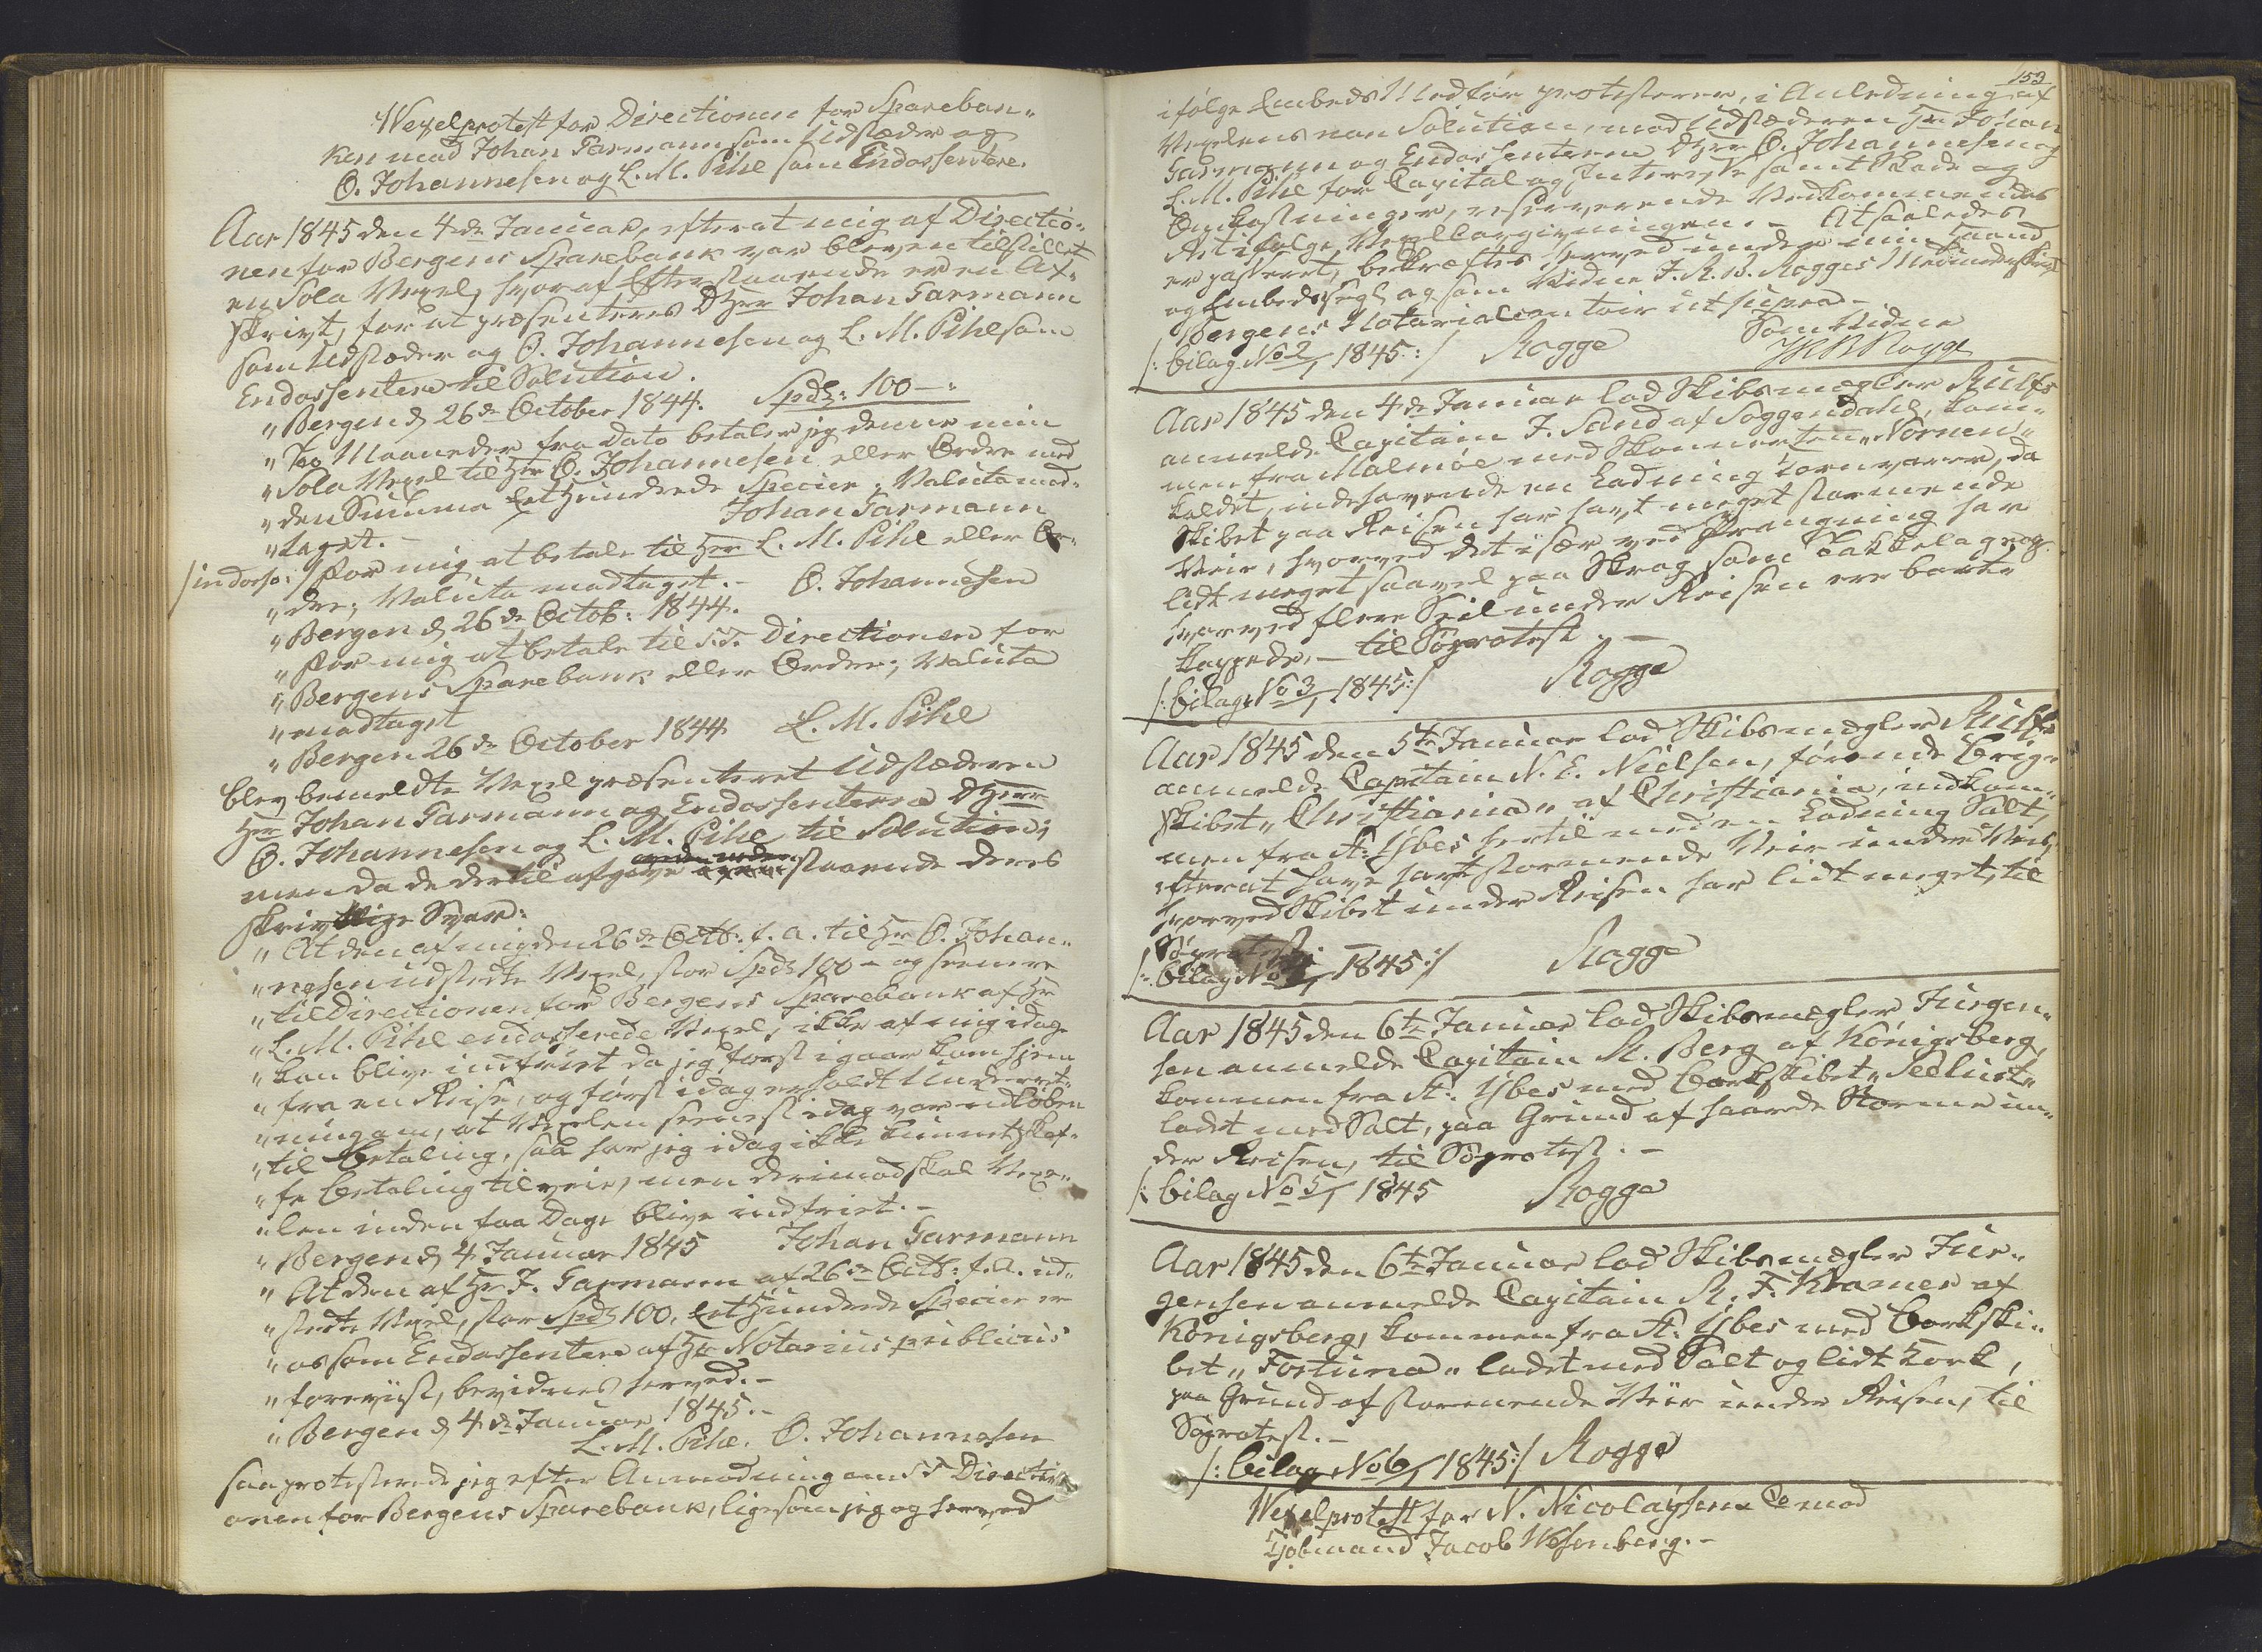 Wexelprotest for Directionen for Spareban-
ken mod Johan Garmann som Udstæder og
O. Johannesen og L. M. Pihl som Endossentere.
Aar 1845 den 4de Januar, efterat mig af Directio-
nen for Bergens Sparebank var bleven tilstillet
en Sola Vexel, hvoraf Efterstaaende er en Af-
skrivt, for at præsenteres DHrr Johan Garmann
som Udstæder og O. Johannesen og L. M. Pihl som
Endossentere til Solution.
"Bergen d. 26de October 1844. Spd: 100 —:
"To Maaneder fra Dato betaler jeg denne min
"Sola Vexel til Hr O. Johannesen eller Ordre med
"den Summa Et Hundrede Specier; Valuta mod-
"taget. — Johan Garmann
/indorso:/ For mig at betale til Herr L. M. Pihl eller Or-
"dre; Valuta modtaget. — O. Johannesen
"Bergen d. 26de Octob: 1844.
"For mig at betale til S.T. Directionen for
"Bergens Sparebank eller Ordre; Valuta
"modtaget
"Bergen 26de October 1844 L. M. Pihl
blev bemeldte Vexel præsenteret Udstæderen
Hrr Johan Garmann og Endossenterne DHrr
O. Johannesen og L. M. Pihl til Solution;
men da de dertil afgave staaende deres
skrivtlige Svar:
"At den af mig den 26de Octb: f. a. til Hr O. Johan-
"nesen udstedte Vexel, stor Spd 100 — og senere
"til Directionen for Bergens Sparebank af Hr
"L. M. Pihl endosserede Vexel, ikke af mig idag
"kan blive indfriet da jeg først igaar kom hjem
"fra en Reise, og først idag erholdt Underret-
"ning om, at Vexelen senest idag var udløben
"til Betaling, saa har jeg idag ikke kunnet skaf-
"fe Betaling tilveie, men derimod skal Vexe-
"len inden faa Dage blive indfriet. —
"Bergen d. 4 Januar 1845 Johan Garmann
"At den af Hr J. Garmann af 26de Octb: f. a. ud-
"stedte Vexel, stor Spd 100, Et Hundrede Specier er
"os som Endossentere af Hr Notarius publicus
"foreviist, bevidnes herved. —
"Bergen d. 4de Januar 1845. —
L. M. Pihl. O. Johannesen
saa protesterede jeg efter Anmodning om S.T. Directi-
onen for Bergens Sparebank, ligesom jeg og herved
153
ifølge Embeds Medfør protesterer, i Anledning af
Vexelens non Solution, mod Udstæderen Hr Johan
Garmann og Endossenterne DHrr O. Johannesen og
L. M. Pihl for Capital og Interesse samt Skade og
Omkostninger, reserverende Vedkommendes
Ret ifølge Vexellovgivningen. — At saaledes
er passeret, bekræftes herved under min Haand
og Embedssegl og som Vidne J. R. B. Rogges Medunderskrivt
Bergens Notarialcontoir ut supra —
Som Vidne
/: bilag No 2/ 1845:/ Rogge JRB Rogge
Aar 1845 den 4de Januar lod Skibsmægler Rulffs
anmelde Capitain J. Sand af Soggendahl, kom-
men fra Malmöe med Skonnerten "Nornen"
kaldet, indehavende en Ladning Kornvarer, da
Skibet paa Reisen har havt meget stormende
Veir, hvorved det især ved Prangning har
lidt meget saavel paa Skrog som Takkelage og
hvorved flere Seil under Reisen ere bort-
kappede, — til Søprotest. —
/: bilag No 3/ 1845:/ Rogge
Aar 1845 den 5te Januar lod Skibsmægler Rulffs
anmelde Capitain N. E. Nielsen, førende Brig-
skibet "Christiania" af Christiania, indkom-
men fra St: Ybes hertil med en Ladning Salt,
efterat have havt stormende Veir under Veis,
hvorved Skibet under Reisen har lidt meget, til
Søprotest.
/: bilag No 4/ 1845:/ Rogge
Aar 1845 den 6te Januar lod Skibsmægler Jürgen-
sen anmelde Capitain R. Berg af Königsberg,
kommen fra St: Ybes med Barkskibet "Seelust"
ladet med Salt, paa Grund af haarde Storme un-
der Reisen, til Søprotest. —
/: bilag No 5/ 1845 Rogge
Aar 1845 den 6te Januar lod Skibsmægler Jür-
gensen anmelde Capitain R. F. Kramer af
Königsberg, kommen fra St. Ybes med Barkski-
bet "Fortuna" ladet med Salt og lidt Kork,
paa Grund af stormende Veir under Reisen, til
Søprotest. —
/: bilag No 6/ 1845:/ Rogge
Wexelprotest for N. Nicolaysen & Co mod
Kjøbmand Jacob Wesenberg. —